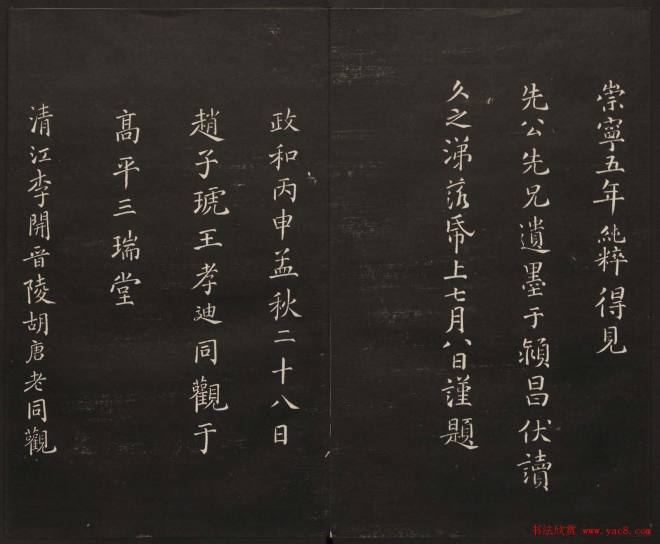 崇寧五年純粹得見
先公先兄遺墨于潁昌伏讀
久之涕落帋上七月八日謹題
政和丙申孟秋二十八日
趙子琥王孝迪同觀于
高平三瑞堂
清江李開晉陵胡唐老同觀
书法欣赏 www.yac8.com